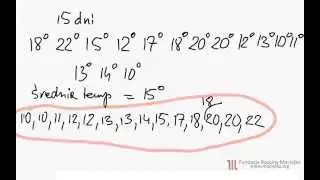 15 dni
18° 22° 15° 12° 17° 18° 20° 20° 12° 13° 10° 11°
13° 14° 10°
średnia temp = 15°
18
10, 10, 11, 12, 12, 13, 13, 14, 15, 17, 18, 20, 20, 22
Fundacja Rodziny Maciejko